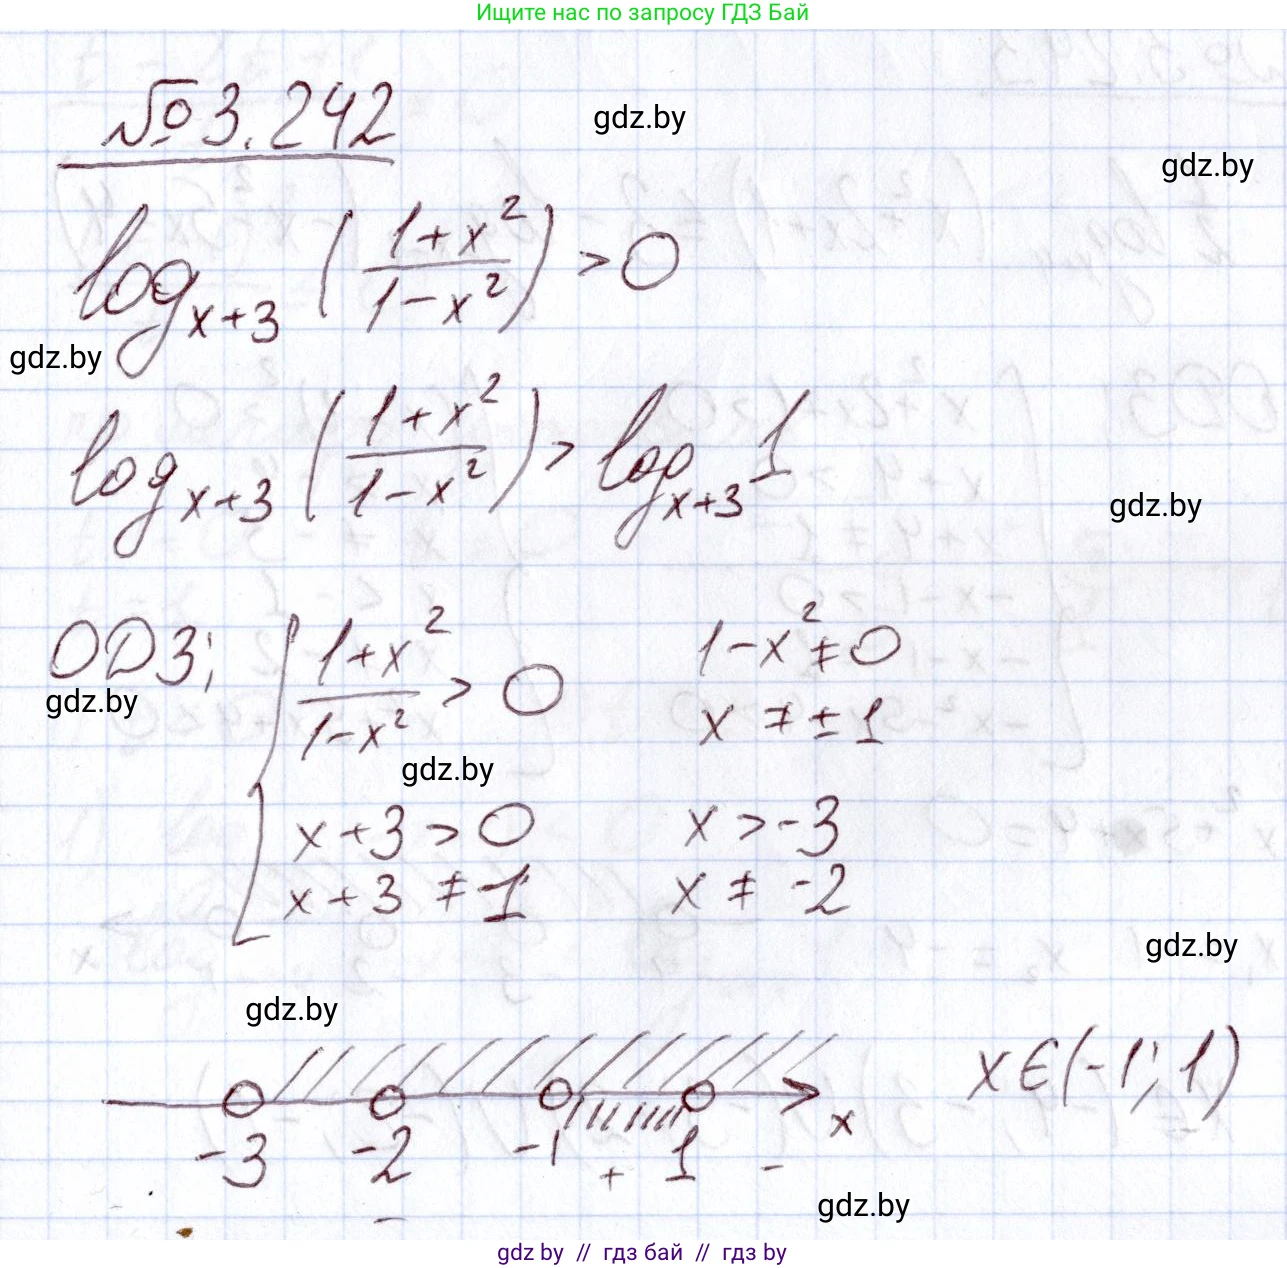 Ищите нас по запросу ГДЗ Бай
№ 3.242
gdz.by
gdz.by
log_{x+3} ( (1+x²)/(1-x²) ) > 0
gdz.by
log_{x+3} ( (1+x²)/(1-x²) ) > log_{x+3} 1
gdz.by
ОДЗ; { (1+x²)/(1-x²) > 0    1-x² ≠ 0
gdz.by
x ≠ ±1
gdz.by
x+3 > 0    x > -3
x+3 ≠ 1    x ≠ -2
gdz.by
gdz.by
x ∈ (-1; 1)
-3 -2 -1 1 x
- + -
gdz.by
gdz by // гдз бай // гдз by